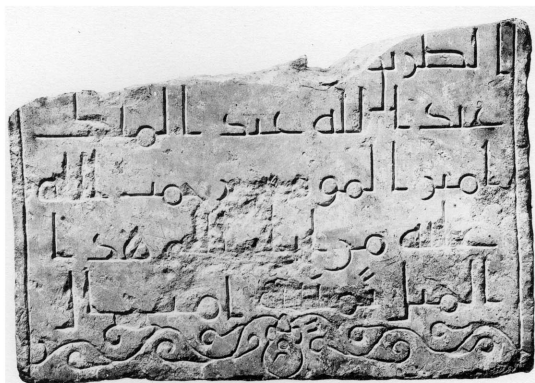 ا الطريق
عبد الله عبد الملك
امير المومنين رحمت الله
عليه من ايليا الى هذا
الميل ثمنية اميال